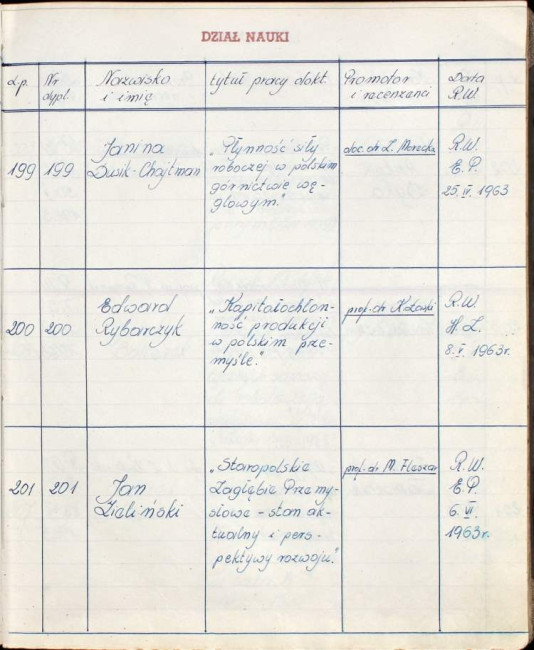 DZIAŁ NAUKI
L.p.
Nr
dypl.
Nazwisko
i imię
tytuł pracy dokt.
Promotor
i recenzenci
Data
R.W.
199
199
Janina
Dwik-Chajtman
„Płynność siły
roboczej w polskim
górnictwie wę-
glowym."
doc. dr L.
R.W.
E.P.
25. IV. 1963
200
200
Edward
Rybarczyk
„Kapitałochłon-
ność produkcji
w polskim prze-
myśle."
prof. dr K.
R.W.
H.L.
8. V. 1963r.
201
201
Jan
Zieliński
„Staropolskie
Zagłębie Przemy-
słowe – stan ak-
tualny i pers-
pektywy rozwoju."
prof. dr M. Fleszar
R.W.
E.P.
6. VI.
1963r.